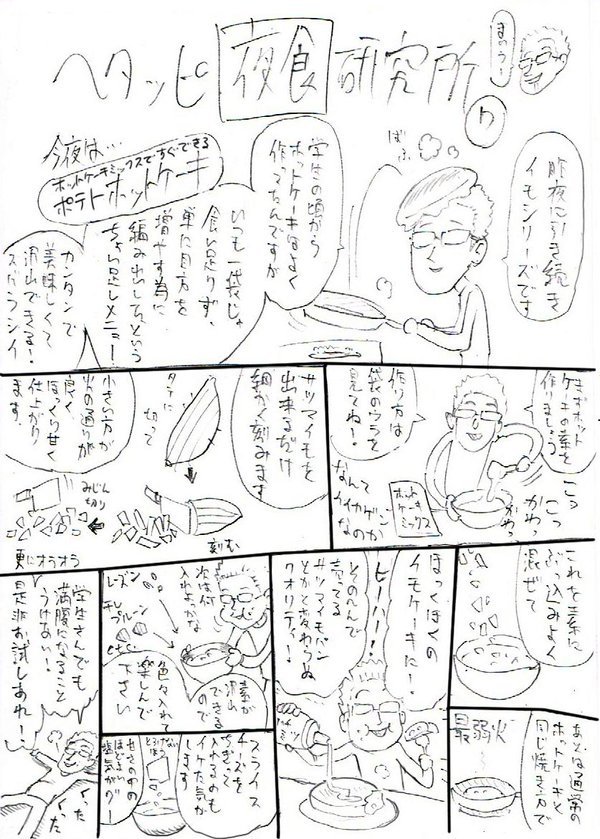 まいう!
ヘタッピ夜食研究所
今夜は…
ホットケーキミックスですぐできる
ポテトホットケーキ
昨夜に引き続き
イモシリーズです
ぱふ
学生の頃から
ホットケーキはよく
作ってたんですが
いつも一袋じゃ
食い足りず、
単に目方を
増やす為に
編み出したという
ちょい足しメニュー
カンタンで
美味しくて
沢山できる!
スバラシイ
まずホット
ケーキの素を
作りましょう
作り方は
袋のウラを
見てね!
なんて
ケイカゲン
なのか
こっ
こっ
かわっ
かわっ
ホット
ケーキ
ミックス
サツマイモを
出来るだけ
細かく刻みます
タテに
切って
刻む
みじん
切り
更にオラオラ
小さい方が
火の通りが
良く
ほっくり甘く
仕上がり
ます。
これを素に
ぶっ込みよく
混ぜて
あとは通常の
ホットケーキと
同じ焼き方で
最弱火
ほっくほくの
イモケーキに!
ヒーハー!
そのへんで
売ってる
サツマイモパン
とかと変わらぬ
クオリティ!
次は何
入れようかな
レーズン
プルーン
チーズ
etc
素が
沢山
できる
ので
色々入れて
楽しんで
下さい
スライス
チーズを
ちぎって
入れるのも
イケた気が
します
とろけない
やつ
ほどよい
塩気がグー
学生さんでも
満腹になること
うけあい!
是非お試しあれ!
くった
くった